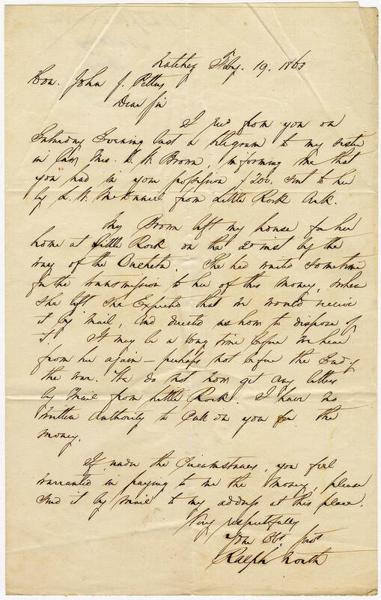 Natchez Feby. 19. 1863
Hon. John J. Pettus
Dear Sir
I rec'd from you on
Saturday Evening last a telegram to my sister
in law Mrs. Brown, informing me that
you had in your possession $200. sent to her
by from Little Rock Ark.
Mrs Brown left my house for her
home at Little Rock on the 20 inst by the
way of the Ouachita. She had waited sometime
for the transmission to her of this money, when
she left she expected that we would receive
it by mail, and directed us how to dispose of
it. It may be a long time before we hear
from her again — perhaps not before the End of
the war. We do not now get any letters
by mail from Little Rock. I have no
written authority to call on you for the
money.
If under the circumstances, you feel
warranted in paying to me the money, please
send it by mail to my address at this place.
Very respectfully
Your Obt. Svt
Ralph North